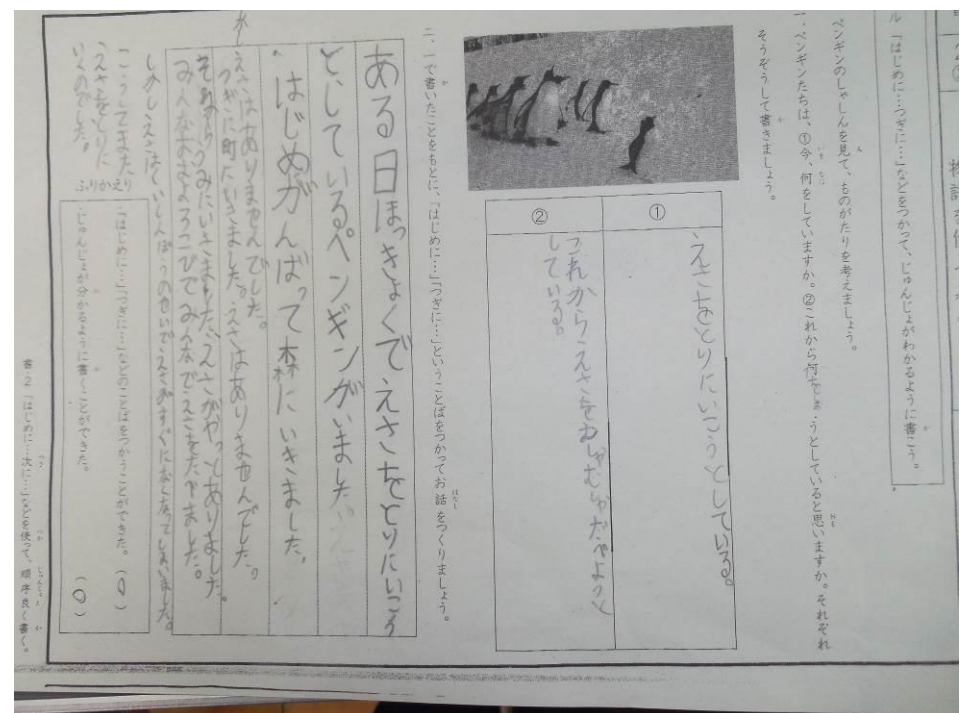 「はじめに…つぎに…」などをつかって、じゅんじょがわかるように書こう。
ペンギンのしゃしんを見て、ものがたりを考えましょう。
一、ペンギンたちは、①今、何をしていますか。②これから何をしようとしていると思いますか。それぞれ
そうぞうして書きましょう。
①
えさをとりにいこうとしている。
②
これからえさをむしゃむしゃたべようと
している。
二、一で書いたことをもとに、「はじめに…」「つぎに…」ということばをつかってお話をつくりましょう。
ある日ほっきょくでえさをとりにいこう
としているペンギンがいました。
はじめがんばって森にいきました。
えさはありませんでした。
つぎに町にいきました。えさはありませんでした。
それからうみにいきました。えさがやっとありました。
みんなおおよろこびでみんなでえさをたべました。
しかしえさはくいしんぼうのせいでえさがすぐになくなってしまいました。
こうしてまた
えさをとりに
いくのでした。
ふりかえり
・「はじめに…」「つぎに…」などのことばをつかうことができた。(○)
・じゅんじょが分かるように書くことができた。(○)
書・2「はじめに…次に…」などを使って、順序良く書く。